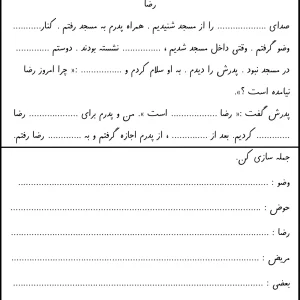 رضا
صدای .................... را از مسجد شنیدیم . همراه پدرم به مسجد رفتم . کنار............
وضو گرفتم . وقتی داخل مسجد شدیم ، ................ نشسته بودند . دوستم ..............
در مسجد نبود . پدرش را دیدم . به او سلام کردم و ................ :« چرا امروز رضا
نیامده است ؟».
پدرش گفت :« رضا .................. است ». من و پدرم برای .................... رضا
.............. کردیم. بعد از ................ ، از پدرم اجازه گرفتم و به .............. رضا رفتم.
جمله سازی کن.
وضو : ................................................................
حوض : ................................................................
رضا : ................................................................
مریض : ................................................................
بعضی : ................................................................